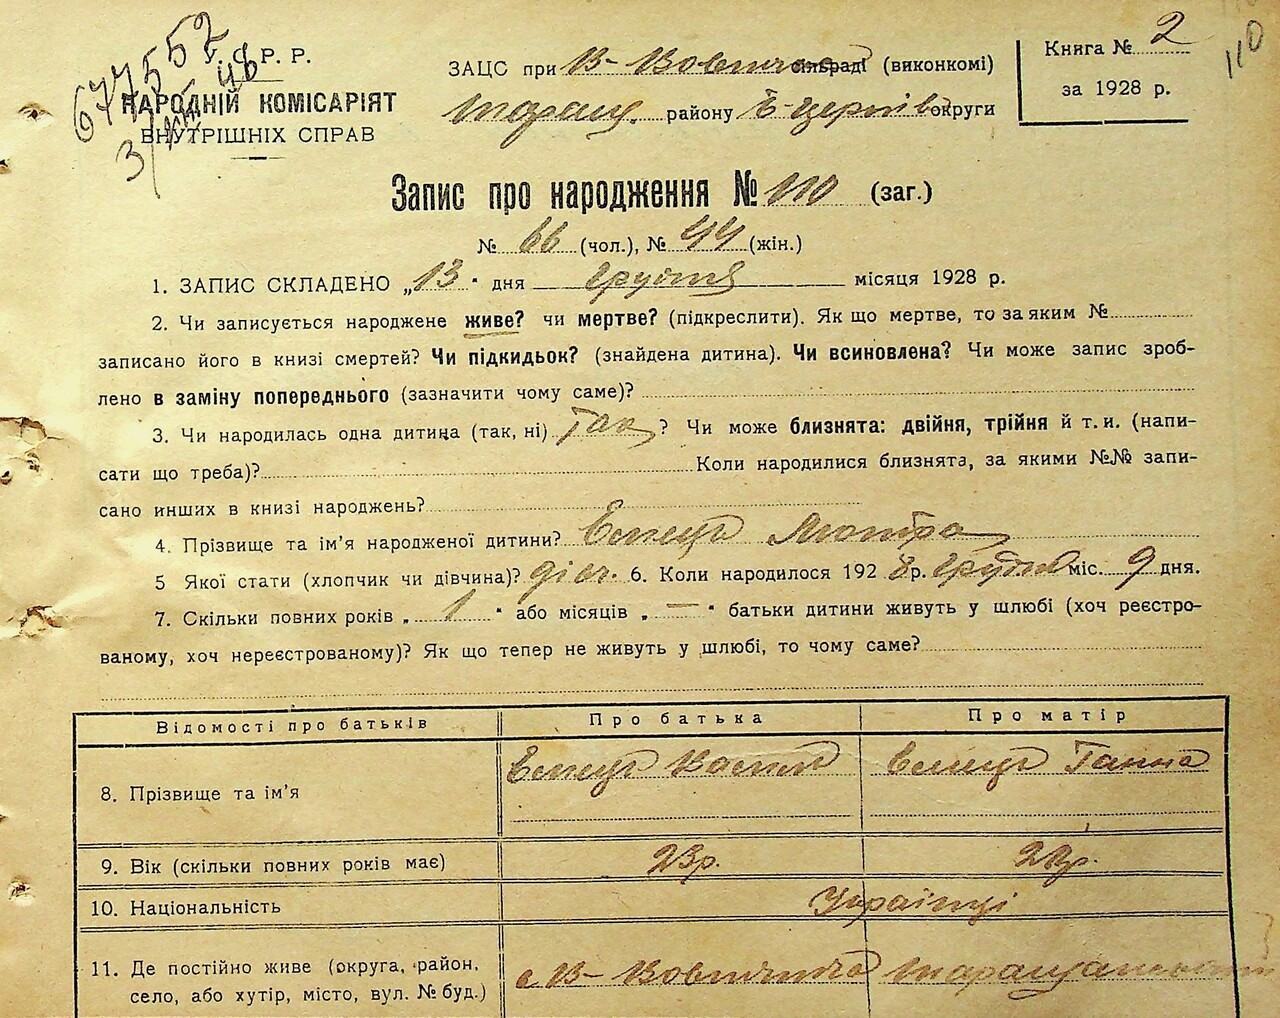 677552
У.С.Р.Р.
НАРОДНІЙ КОМІСАРІЯТ
ВНУТРІШНІХ СПРАВ
ЗАЦС при В- Вовнянка сільраді (виконкомі)
Таращ. району Б-Церків округи
Книга № 2
за 1928 р.
110
Запис про народження № 110 (заг.)
№ 66 (чол.), № 44 (жін.)
1. ЗАПИС СКЛАДЕНО „13“ дня Грудня місяця 1928 р.
2. Чи записується народжене живе? чи мертве? (підкреслити). Як що мертве, то за яким №
записано його в книзі смертей? Чи підкидьок? (знайдена дитина). Чи всиновлена? Чи може запис зроб-
лено в заміну попереднього (зазначити чому саме)?
3. Чи народилась одна дитина (так, ні) Так ? Чи може близнята: двійня, трійня й т. и. (напи-
сати що треба)? Коли народилися близнята, за якими №№ запи-
сано инших в книзі народжень?
4. Прізвище та ім’я народженої дитини?
5 Якої стати (хлопчик чи дівчина)? дівч. 6. Коли народилося 192 8 р. Грудня міс. 9 дня.
7. Скільки повних років „ 1 “ або місяців „ — “ батьки дитини живуть у шлюбі (хоч реєстро-
ваному, хоч нереєстрованому)? Як що тепер не живуть у шлюбі, то чому саме?
Відомості про батьків Про батька Про матір
8. Прізвище та ім’я Ганна
9. Вік (скільки повних років має) 23р.
10. Національність Українці
11. Де постійно живе (округа, район,
село, або хутір, місто, вул. № буд.) с. В-